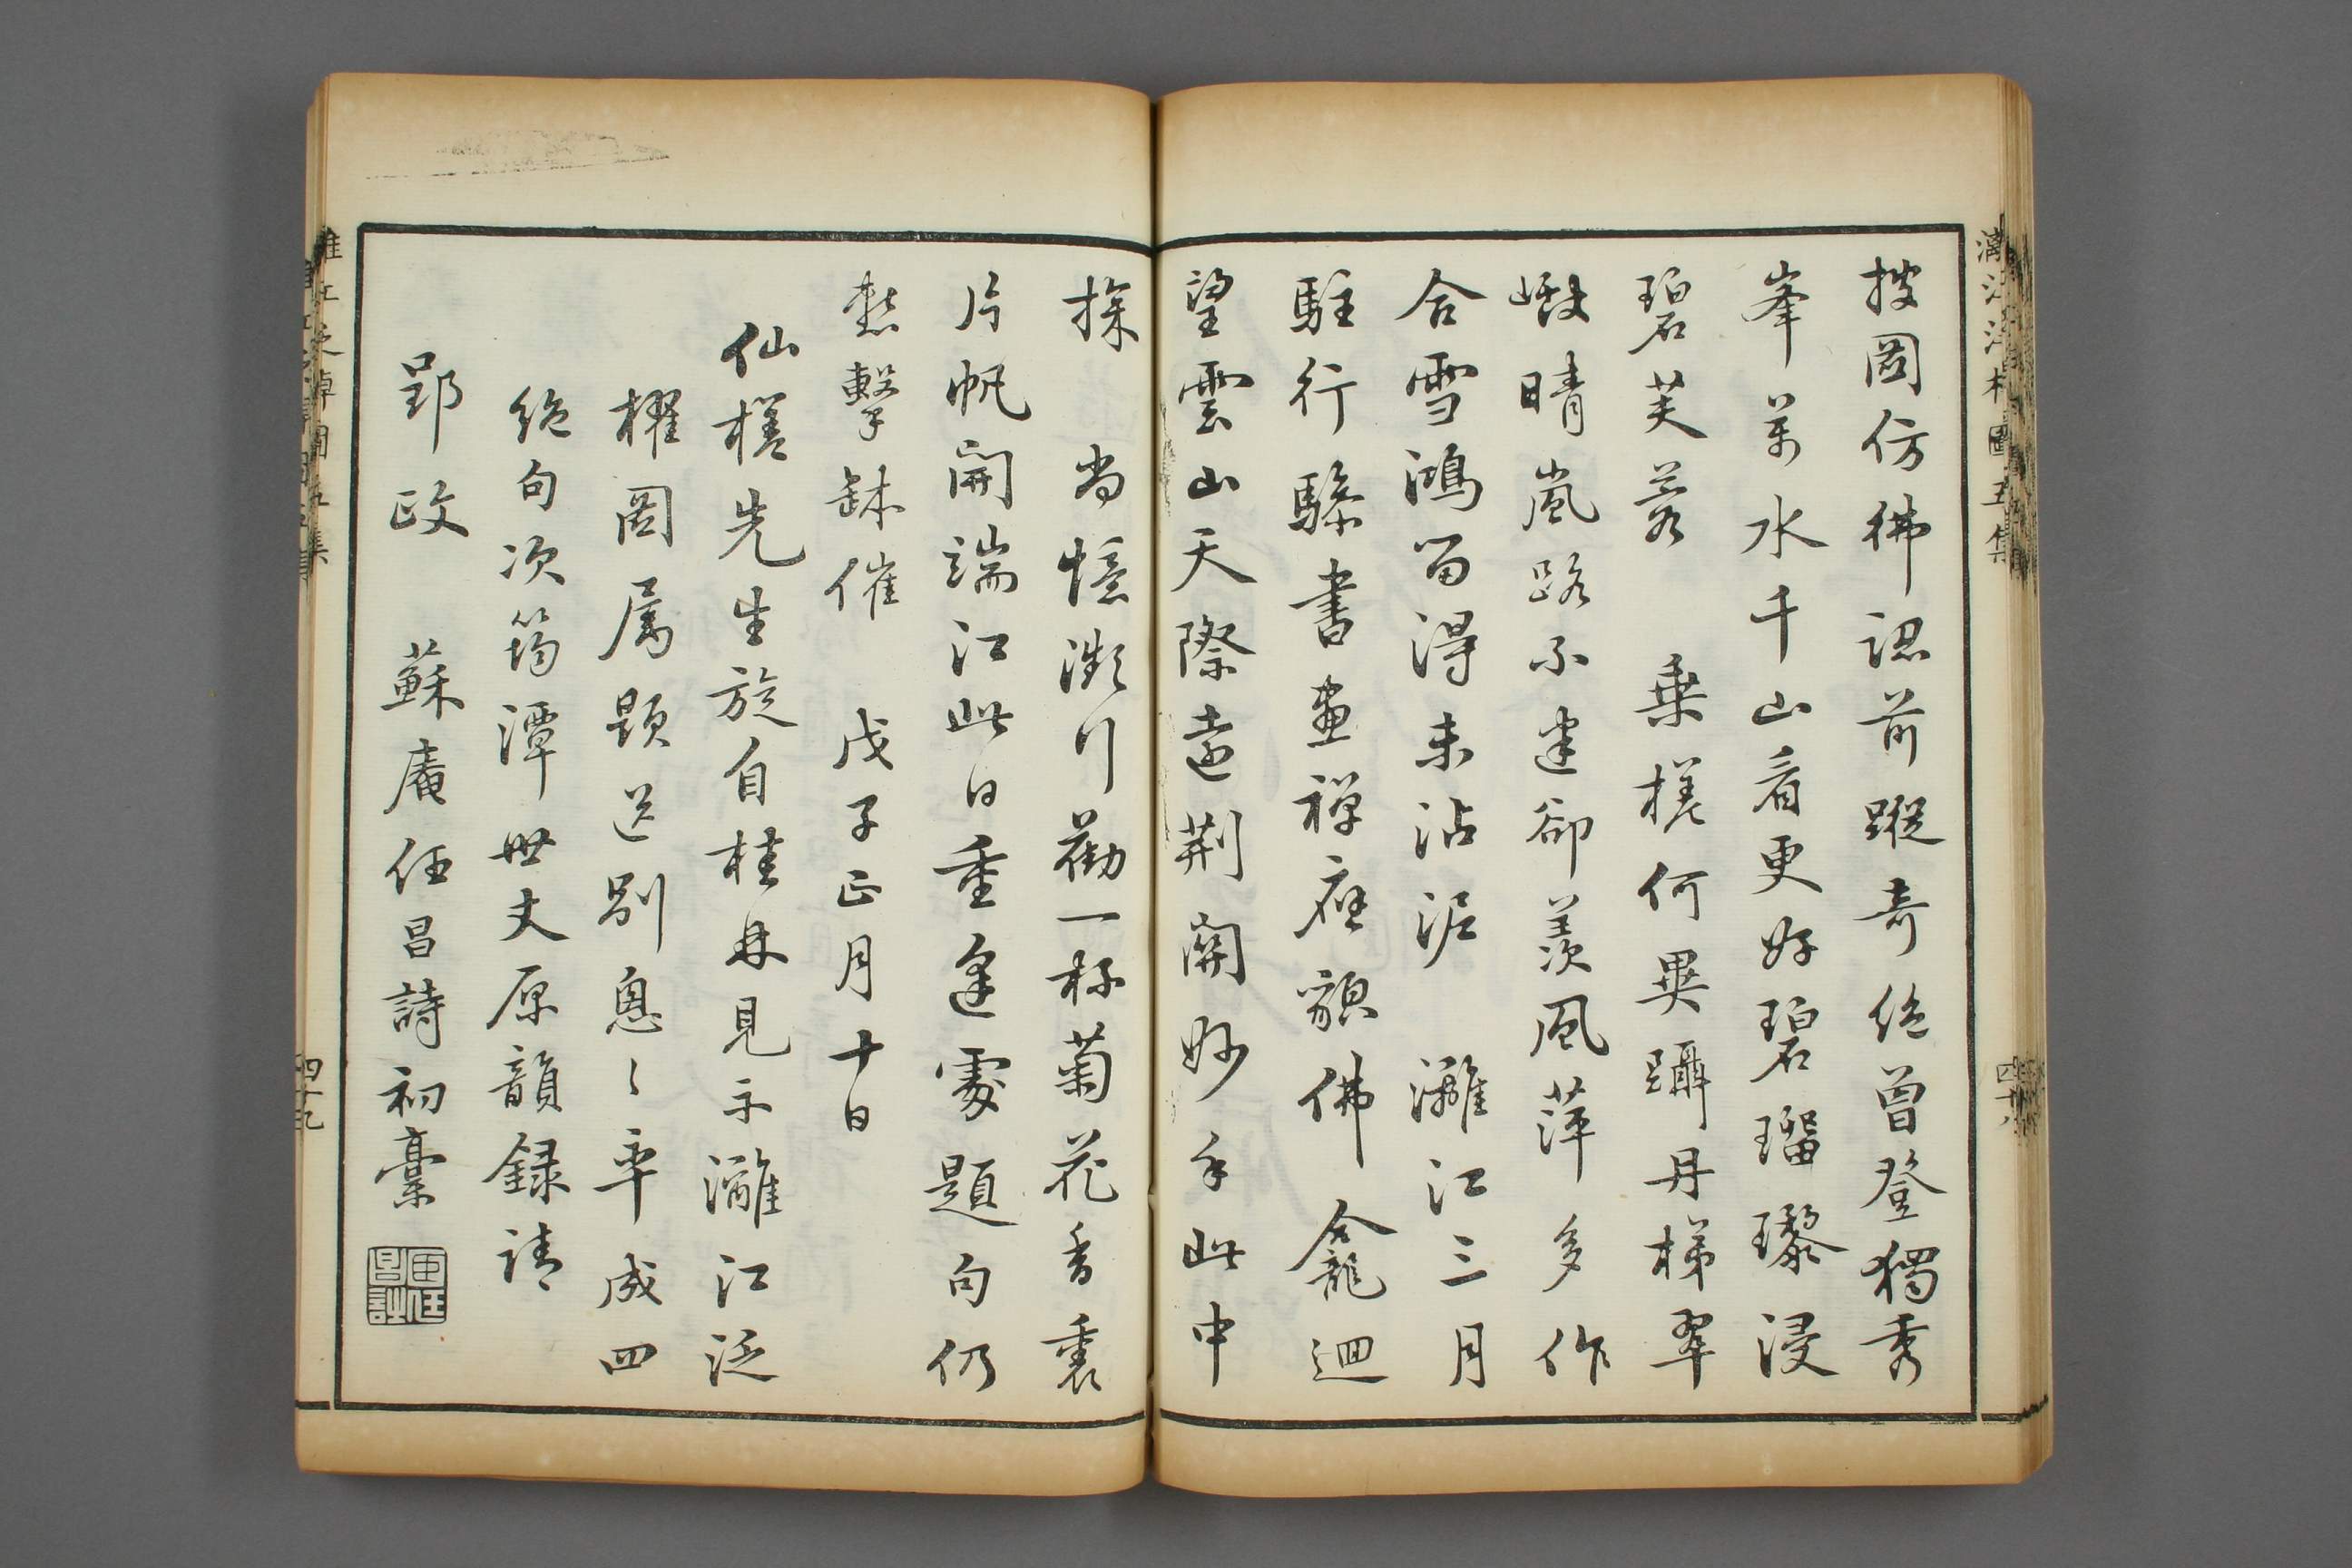 灕江泛櫂圖五集
四十八
披圖仿彿認前蹤奇絕曾登獨秀
峯萬水千山看更好碧瑠璨浸
碧芙蓉　乘槎何異躡丹梯翠
巘晴嵐路不迷卻羨風萍多作
合雪鴻留得未沾泥　灕江三月
駐行驂書畫禪應額佛龕迴
望雲山天際遠荆關妙手此中
探　尚憶瀕行勸一杯菊花香裏
片帆開端江此日重逢處題句仍
愁擊缽催　戊子正月十日
仙槎先生旋自桂林見示灕江泛
櫂圖屬題送別悤〻率成四
絕句次筠潭世丈原韻錄請
郢政　蘇庵任昌詩初稾
灕江泛櫂圖五集
四十九